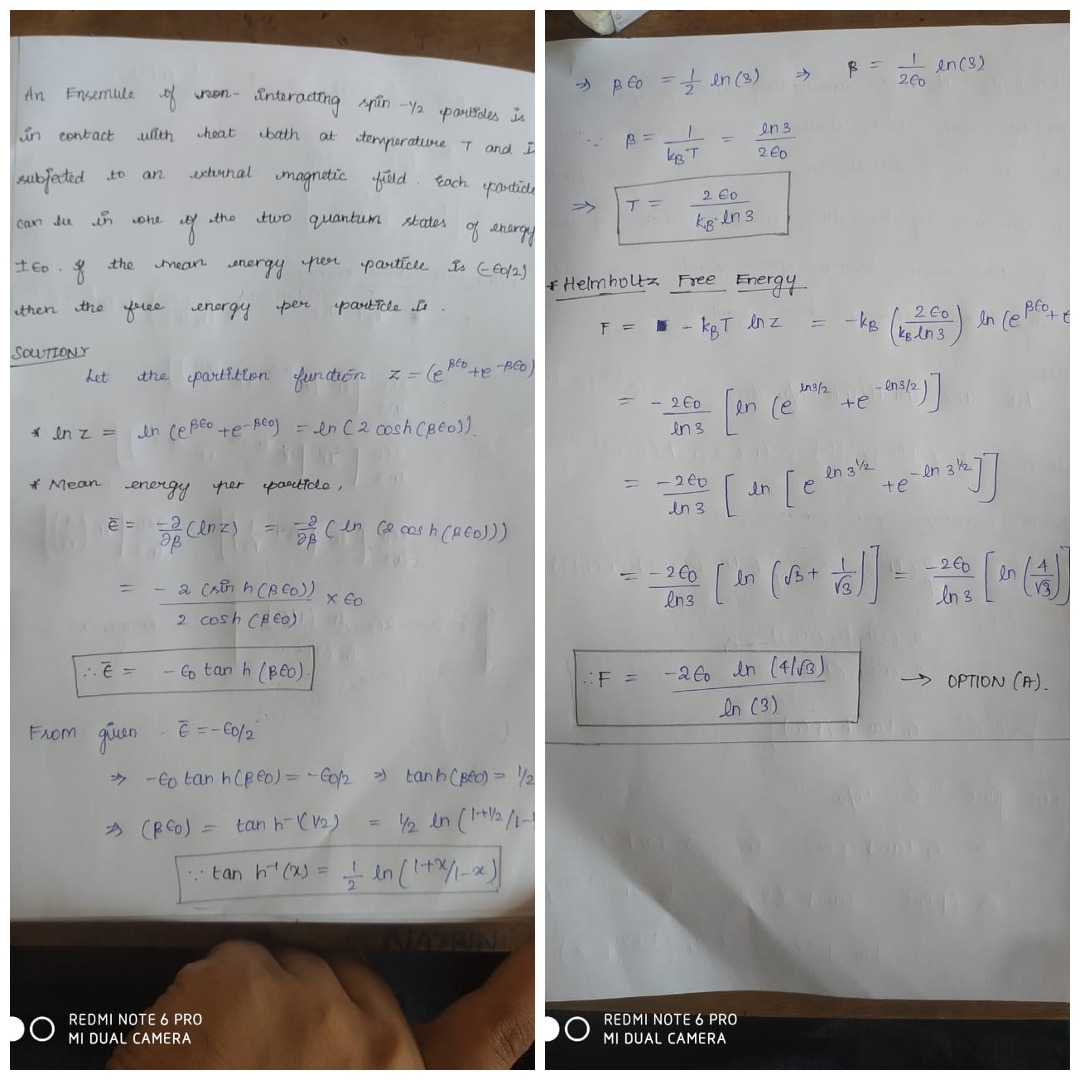 An Ensemule of non-interacting spin-1/2 particles is
in contact with heat bath at temperature T and I
subjected to an external magnetic field. Each particle
can be in one of the two quantum states of energy
±ϵ0. If the mean energy per particle is (-ϵ0/2)
then the free energy per particle is.
SOLUTION
Let the partition function z = (e^{βϵ0} + e^{-βϵ0})
* ln z = ln (e^{βϵ0} + e^{-βϵ0}) = ln (2 cosh(βϵ0)).
* Mean energy per particle,
ϵ̄ = -∂/∂β (ln z) = -∂/∂β (ln (2 cosh(βϵ0)))
= - 2 (sin h(βϵ0)) / 2 cosh (βϵ0) × ϵ0
∴ ϵ̄ = -ϵ0 tan h (βϵ0)
From given ϵ̄ = -ϵ0/2
⇒ -ϵ0 tan h(βϵ0) = -ϵ0/2 ⇒ tanh(βϵ0) = 1/2
⇒ (βϵ0) = tan h⁻¹(1/2) = 1/2 ln (1+1/2 / 1-
∵ tan h⁻¹(x) = 1/2 ln (1+x/1-x)
⇒ βϵ0 = 1/2 ln(3) ⇒ β = 1/2ϵ0 ln(3)
∵ β = 1/k_BT = ln3/2ϵ0
⇒ T = 2ϵ0 / k_B ln 3
* Helmholtz Free Energy
F = - k_BT ln z = -k_B (2ϵ0 / k_B ln3) ln (e^{βϵ0} + e
= -2ϵ0/ln 3 [ln (e^{ln3/2} + e^{-ln3/2})]
= -2ϵ0/ln 3 [ln [e^{ln 3^{1/2}} + e^{-ln 3^{1/2}}]]
= -2ϵ0/ln3 [ln (√3 + 1/√3)] = -2ϵ0/ln 3 [ln (4/√3)]
∴ F = -2ϵ0 ln (4/√3) / ln (3) → OPTION (A).
REDMI NOTE 6 PRO
MI DUAL CAMERA
REDMI NOTE 6 PRO
MI DUAL CAMERA